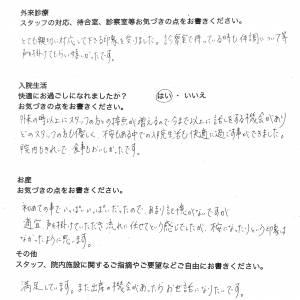 外来診療
スタッフの対応、待合室、診察室等お気づきの点をお書きください。
とても親切に対応して下さる印象を受けました。診察室で待っている時も体調について等
声を掛けてもらい嬉しかったです。
入院生活
快適にお過ごしになれましたか? はい ・ いいえ
お気づきの点をお書きください。
外来の時以上にスタッフの方との接点が増えるので今まで以上に話しをする機会があり
どのスタッフの方も優しく、桜もある中での入院生活も快適に過ごす事ができました。
院内もきれいで食事もおいしかったです。
お産
お気づきの点をお書きください。
初めての事でいっぱいいっぱいだったので、あまり記憶がないですが
適宜、声を掛けていただき流れに任せてという感じでしたが、桜になったりという印象は
なかったように思います。
その他
スタッフ、院内施設に関するご指摘やご要望などご自由にお書きください。
満足しています。また出産の機会があったらお世話になりたいです。